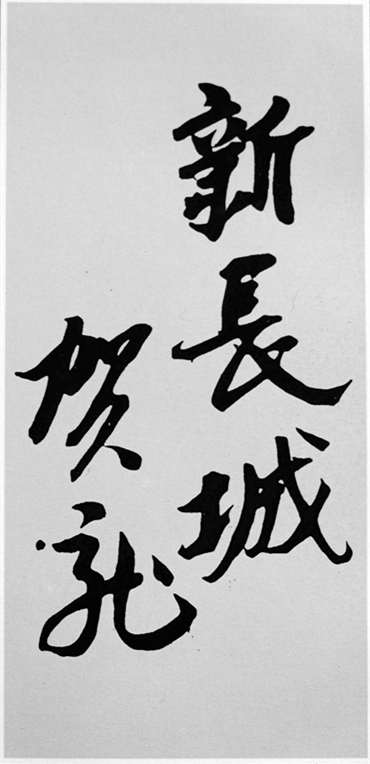 新長城
贺龙